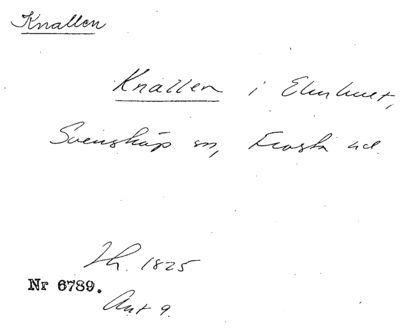 Knallen
Knallen i Ekuhuet,
Svenskåp sn, Frosta hd.
Th. 1825
Nr 6789.
Ant 9.